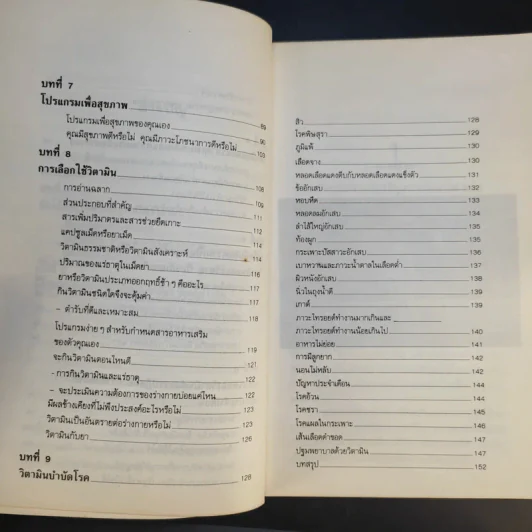 บทที่ 7
โปรแกรมเพื่อสุขภาพ
โปรแกรมเพื่อสุขภาพของคุณเอง 89
คุณมีสุขภาพดีหรือไม่ คุณมีภาวะโภชนาการดีหรือไม่ 103
บทที่ 8
การเลือกใช้วิตามิน 108
การอ่านฉลาก 110
ส่วนประกอบที่สำคัญ 111
สารเพิ่มปริมาตรและสารช่วยยึดเกาะ 112
แคปซูลเม็ดหรือยาเม็ด 112
วิตามินธรรมชาติหรือวิตามินสังเคราะห์ 114
ปริมาณของแร่ธาตุในเม็ดยา 116
ยาหรือวิตามินประเภทออกฤทธิ์ช้า ๆ คืออะไร 117
กินวิตามินชนิดใดจึงจะคุ้มค่า 116
- ตำรับที่ดีและเหมาะสม 118
โปรแกรมง่าย ๆ สำหรับกำหนดสารอาหารเสริม
ของตัวคุณเอง 119
จะกินวิตามินตอนไหนดี 121
- การกินวิตามินและแร่ธาตุ 122
- จะประเมินความต้องการของร่างกายบ่อยแค่ไหน 122
มีผลข้างเคียงที่ไม่พึงประสงค์อะไรหรือไม่ 123
วิตามินเป็นอันตรายต่อร่างกายหรือไม่ 123
วิตามินกับยา 126
บทที่ 9
วิตามินบำบัดโรค 128
สิว 128
โรคพิษสุรา 129
ภูมิแพ้ 130
เลือดจาง 130
หลอดเลือดแดงตีบกับหลอดเลือดแดงแข็งตัว 131
ข้ออักเสบ 132
หอบหืด 133
หลอดลมอักเสบ 134
ลำไส้ใหญ่อักเสบ 135
ท้องผูก 135
กระเพาะปัสสาวะอักเสบ 136
เบาหวานและภาวะน้ำตาลในเลือดต่ำ 137
ผิวหนังอักเสบ 138
นิ่วในถุงน้ำดี 139
เกาต์ 139
ภาวะไทรอยด์ทำงานมากเกินและ
ภาวะไทรอยด์ทำงานน้อยเกินไป 140
อาหารไม่ย่อย 141
การมีลูกยาก 142
นอนไม่หลับ 142
ปัญหาประจำเดือน 142
โรคอ้วน 144
โรคชรา 145
โรคแผลในกระเพาะ 146
เส้นเลือดดำขอด 147
ปฐมพยาบาลด้วยวิตามิน 147
บทสรุป 152